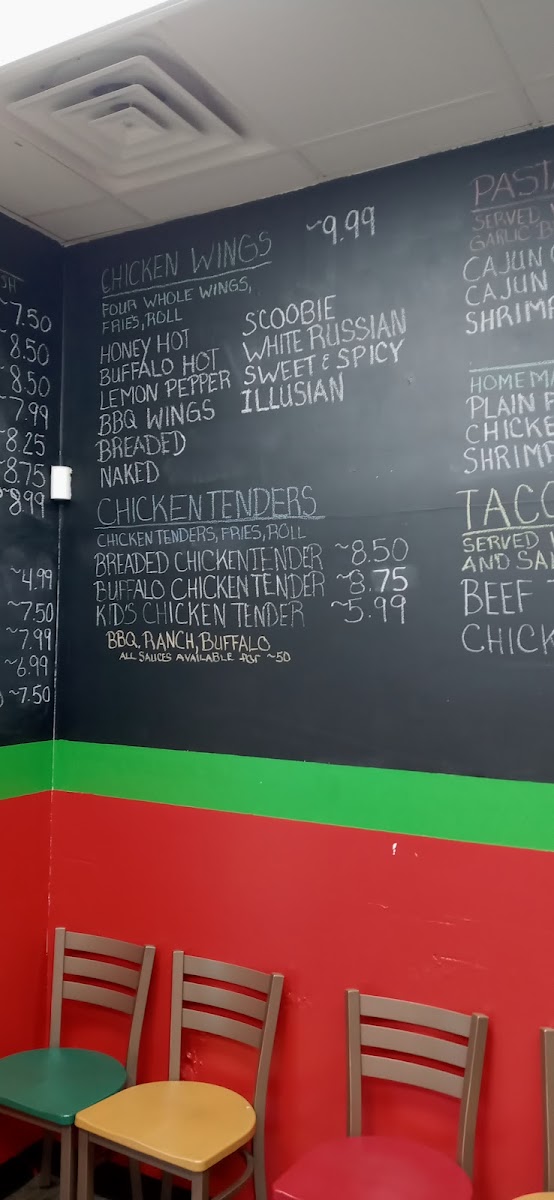 SH
~7.50
~8.50
~8.50
~7.99
~8.25
~8.75
~8.99
~4.99
~7.50
~7.99
~6.99
~7.50
CHICKEN WINGS ~9.99
FOUR WHOLE WINGS,
FRIES, ROLL
HONEY HOT
BUFFALO HOT
LEMON PEPPER
BBQ WINGS
BREADED
NAKED
SCOOBIE
WHITE RUSSIAN
SWEET & SPICY
ILLUSIAN
CHICKEN TENDERS
CHICKEN TENDERS, FRIES, ROLL
BREADED CHICKEN TENDER ~8.50
BUFFALO CHICKEN TENDER ~8.75
KIDS CHICKEN TENDER ~5.99
BBQ, RANCH, BUFFALO
ALL SAUCES AVAILABLE for ~50
PAST
SERVED
GARLIC B
CAJUN
CAJUN
SHRIMP
HOMEMA
PLAIN
CHICKE
SHRIMP
TACO
SERVED
AND SA
BEEF
CHICK